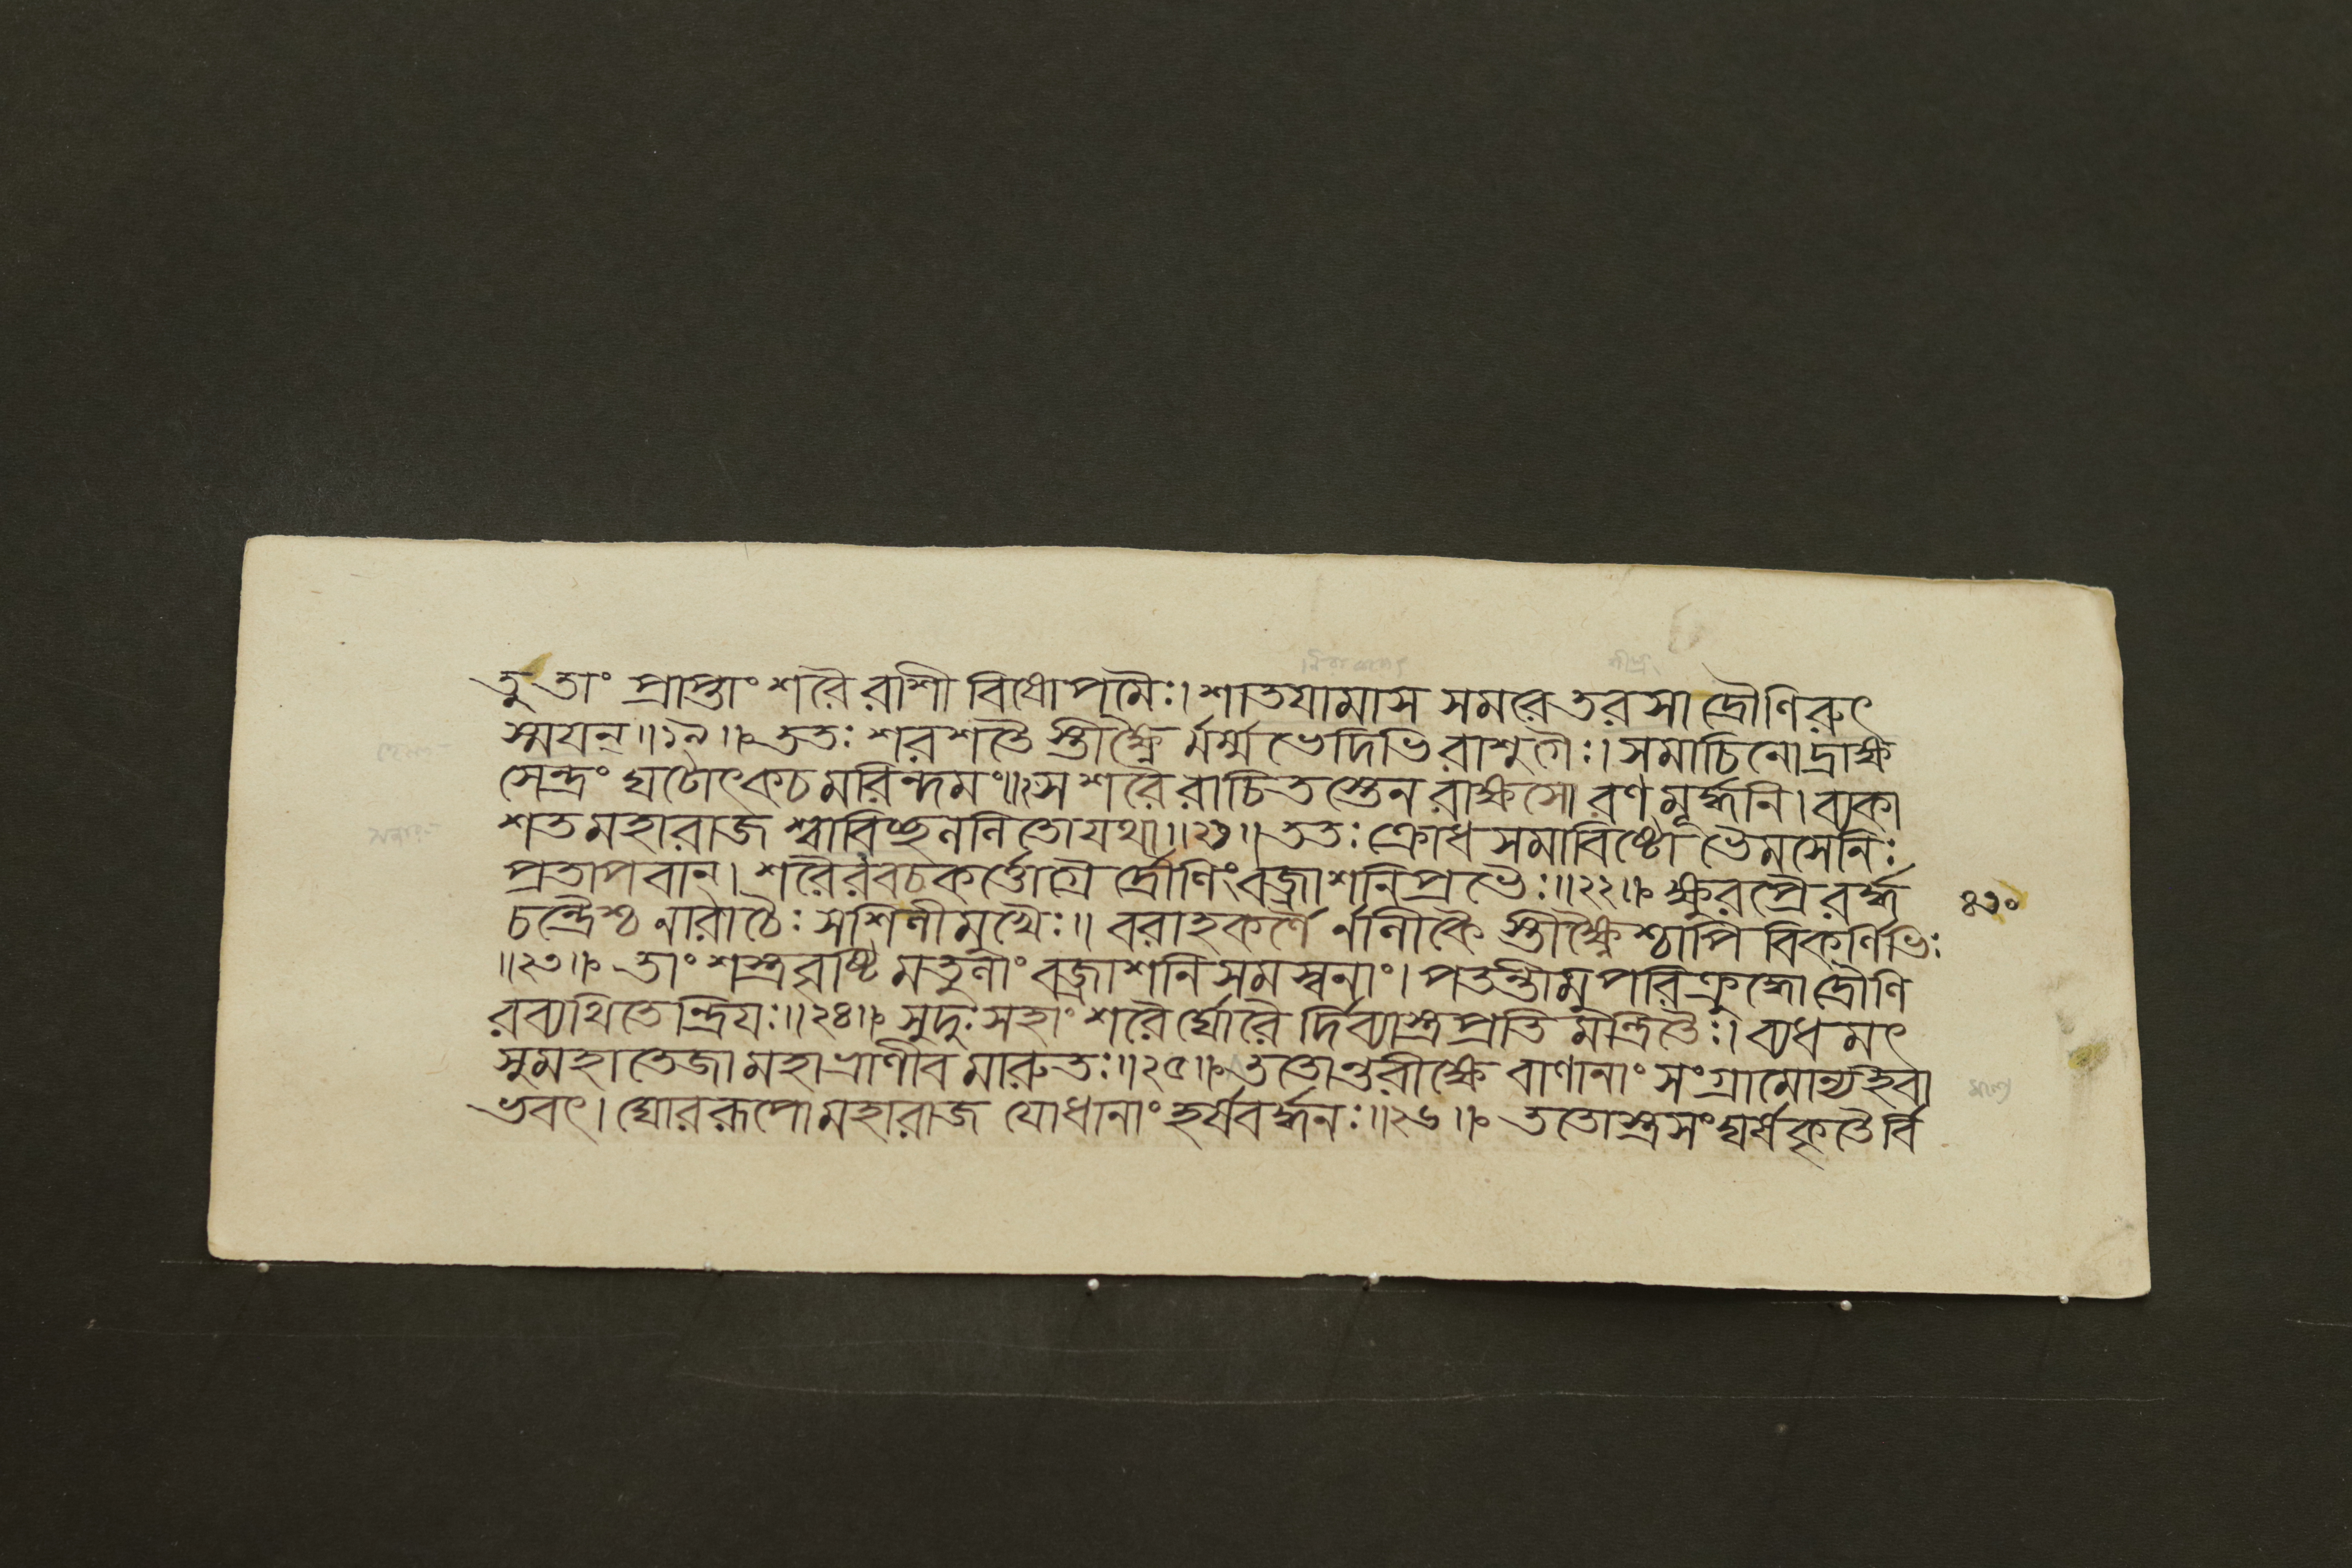 তু তাং প্রাপ্তাং শরৈ রাশী বিষোপমৈঃ। শাতয়ামাস সমরে তরসা দ্রৌণিরুৎ
স্ময়ন্॥১৯॥ ততঃ শরশতৈ স্তীক্ষ্ণৈ র্মর্ম্ম ভেদিভি রাশুগৈঃ। সমাচিনোদ্রাক্ষ
সেন্দ্রং ঘটোৎকচমরিন্দমঃ॥২০ স শরৈ রাচিতস্তেন রাক্ষসো রণমূর্দ্ধনি। ব্যকা
শত মহারাজ শ্বাবিচ্ছললিতো যথা॥২১॥ ততঃ ক্রোধ সমাবিষ্টো ভৈমসেনিঃ
প্রতাপবান্। শরৈরবচকর্ত্তোগ্রৈ র্দ্রৌণিং বজ্রাশনিপ্রভৈঃ॥২২॥ ক্ষুরপ্রৈ রর্দ্ধ
চন্দ্রৈশ্চ নারাচৈঃ সশিলীমুখৈঃ॥ বরাহকর্ণৈ র্নালীকৈ স্তীক্ষ্ণৈ শ্চাপি বিকর্ণিভিঃ
॥২৩॥ তাং শস্ত্রবৃষ্টি মতুলাং বজ্রাশনিসমস্বনাং। পতন্তীমুপরি ক্রুদ্ধো দ্রৌণি
রব্যথিতেন্দ্রিয়ঃ॥২৪॥ সুদুঃসহাং শরৈর্ঘোরৈ র্দিব্যাস্ত্রপ্রতি মন্ত্রিতৈঃ। ব্যধমৎ
সুমহাতেজা মহাভ্রাণীব মারুতঃ॥২৫॥ ততোন্তরীক্ষে বাণানাং সংগ্রামোন্যইবা
ভবৎ। ঘোররূপো মহারাজ যোধানাং হর্ষবর্দ্ধনঃ॥২৬॥ ততোস্ত্রসংঘর্ষকৃতৈর্বি
৪১০